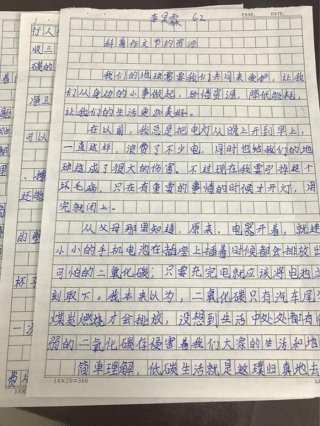 62
PAGE. DATE.
好着作文节约资源
我们的地球需要我们共同来爱护,让我
们从身边的小事做起,珍惜资源,降低能耗,
让我们的生活更加美好。
在以前,我总是把电灯从晚上开到早上,
一直这样,浪费了不少电,同时也给我们的地
球造成了很大的伤害。不过现在我要改掉这个
坏毛病,只在有重要的事情的时候才开灯,用
完就闭上。
从父母那里知道,原来,电器开着,就连
小小的手机电池在插座上插着时候都会排放出
可怕的二氧化碳,只需充完电就应该将电池立
刻取下。我本来以为,二氧化碳只有汽车尾
煤炭燃烧才会排放,没想到生活中处处都有
弱的二氧化碳在侵害着我们大家的生活和地
简单理解,低碳生活就是返璞归真地去
18×20=360
行人
收三
碳的
净况
可以